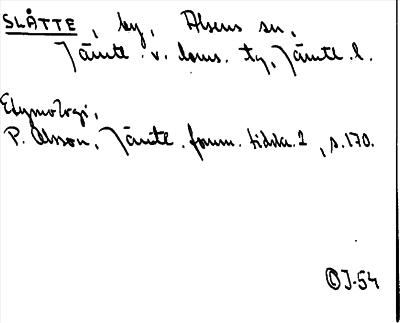 SLÅTTE, by, Alsens sn,
Jämtl. v. doms. tg, Jämtl. l.
Etymologi,
P. Olsson, Jämtl. fornm. tidskr. 2, s. 170.
OJ-54